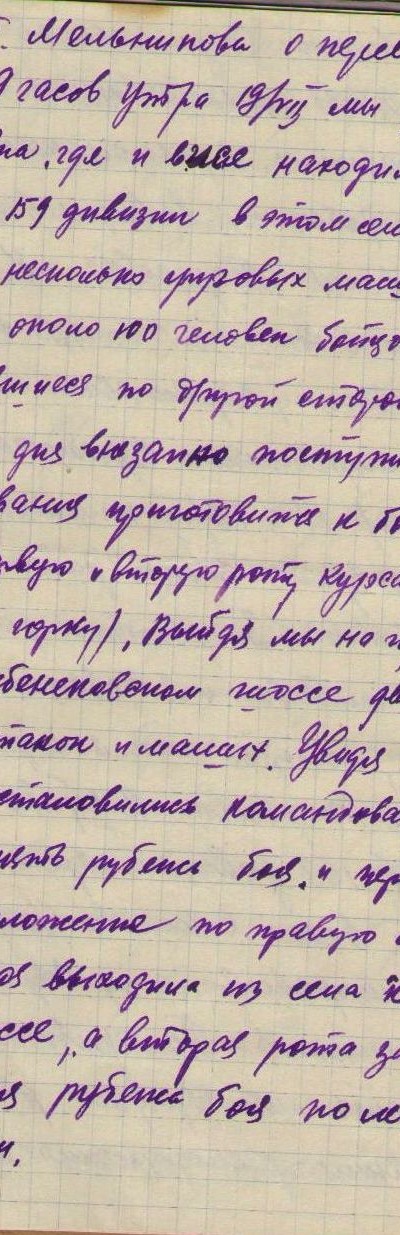 г. Мельникова о пере
9 часов утра 19/VII мы
на, где и выше находи
159 дивизии в этом се
несколько грузовых маш
около 100 человек бойцо
вшиеся по другой сторо
дня внезапно поступи
вания приготовится к бо
рвую и вторую роту курса
горку), Выйдя мы на
бенековском шоссе
танок и машин. Увидя
становились командова
нять рубежи боя. и пер
ложение по правую
оя выходила из села
ссе, а вторая рота за
я рубежи боя по ле
и.